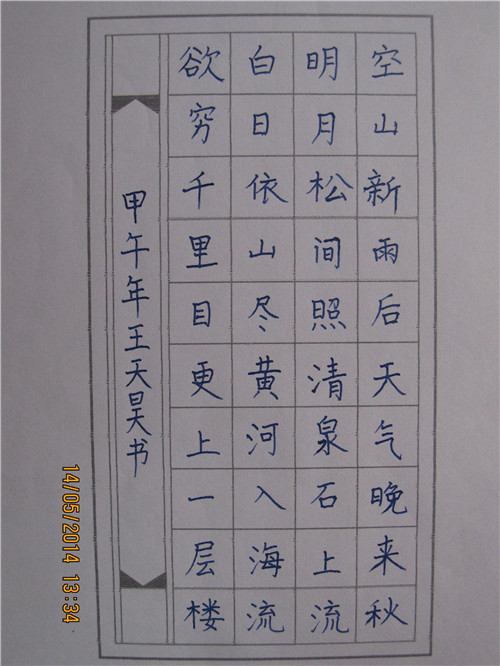 空山新雨后天气晚来秋
明月松间照清泉石上流
白日依山尽黄河入海流
欲穷千里目更上一层楼
甲午年王天昊书
14/05/2014 13:34